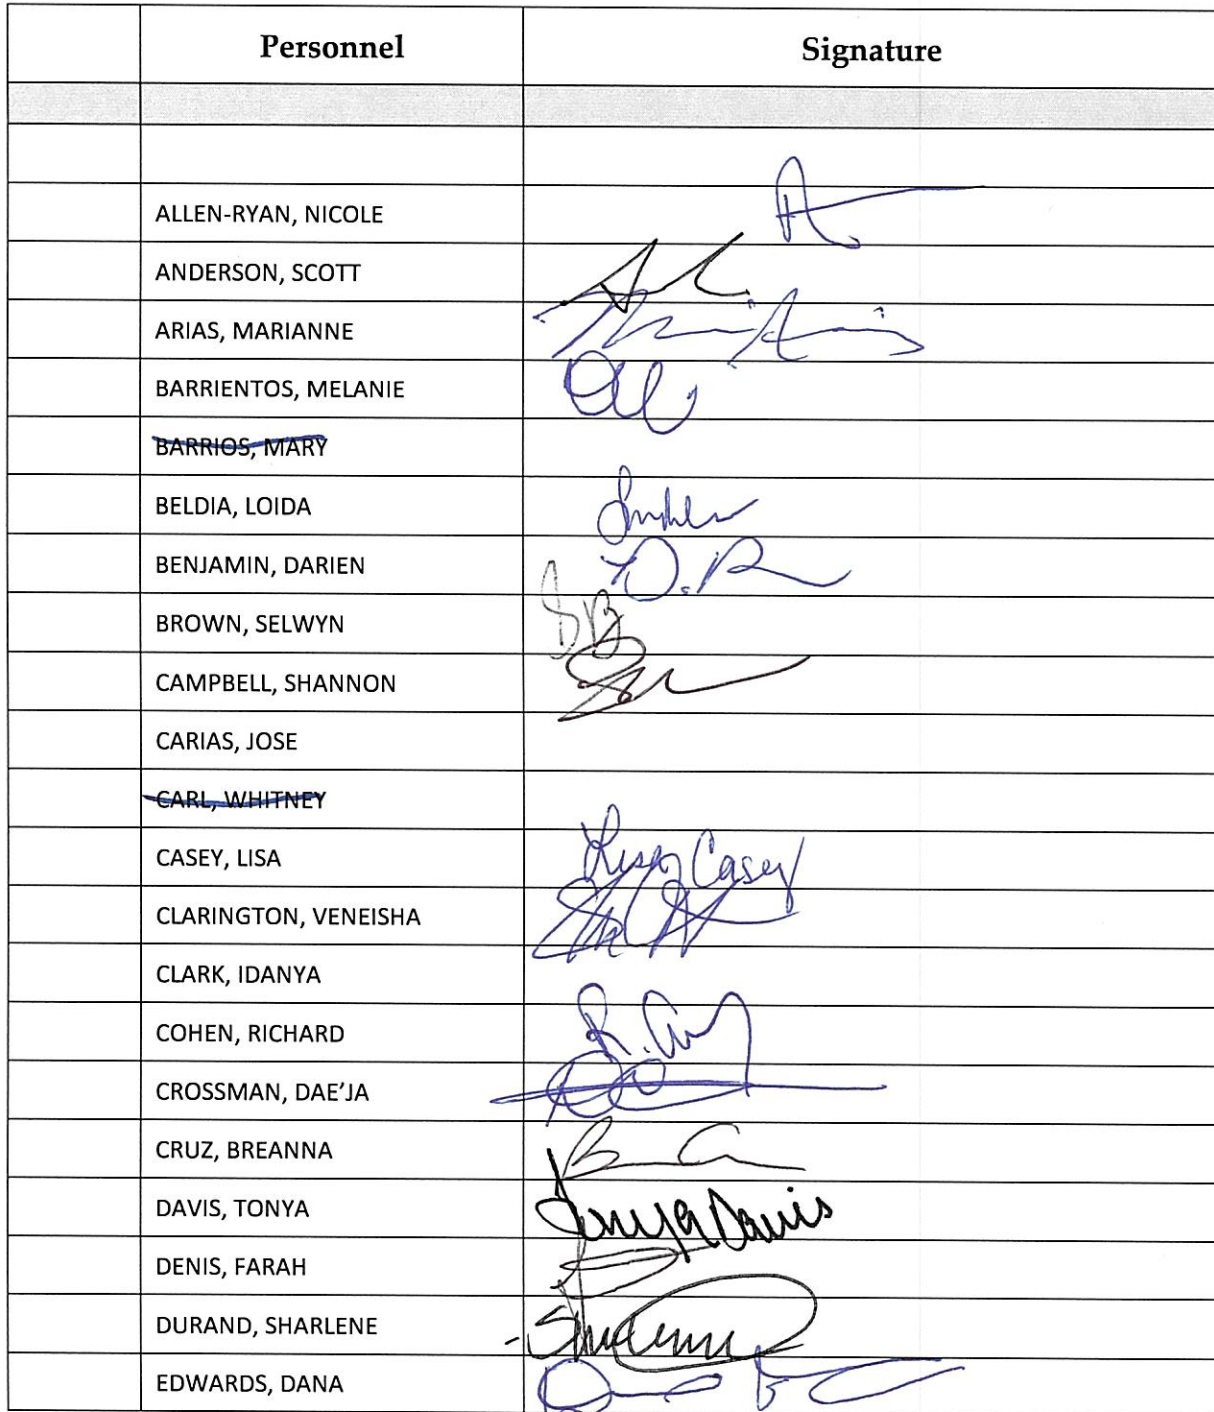 Personnel Signature
ALLEN-RYAN, NICOLE
ANDERSON, SCOTT
ARIAS, MARIANNE
BARRIENTOS, MELANIE
BARRIOS, MARY
BELDIA, LOIDA
BENJAMIN, DARIEN
BROWN, SELWYN SB
CAMPBELL, SHANNON
CARIAS, JOSE
CARL, WHITNEY
CASEY, LISA Lisa Casey
CLARINGTON, VENEISHA
CLARK, IDANYA
COHEN, RICHARD
CROSSMAN, DAE'JA
CRUZ, BREANNA
DAVIS, TONYA Tonya Davis
DENIS, FARAH
DURAND, SHARLENE
EDWARDS, DANA